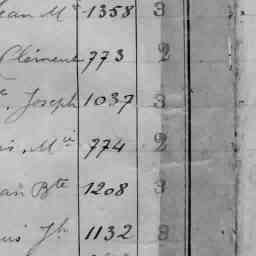 ean Mie 1358 3
Clément 773 2
Joseph 1037 3
is, Mie 774 2
ean Bte 1208 3
uis Jh 1132 3